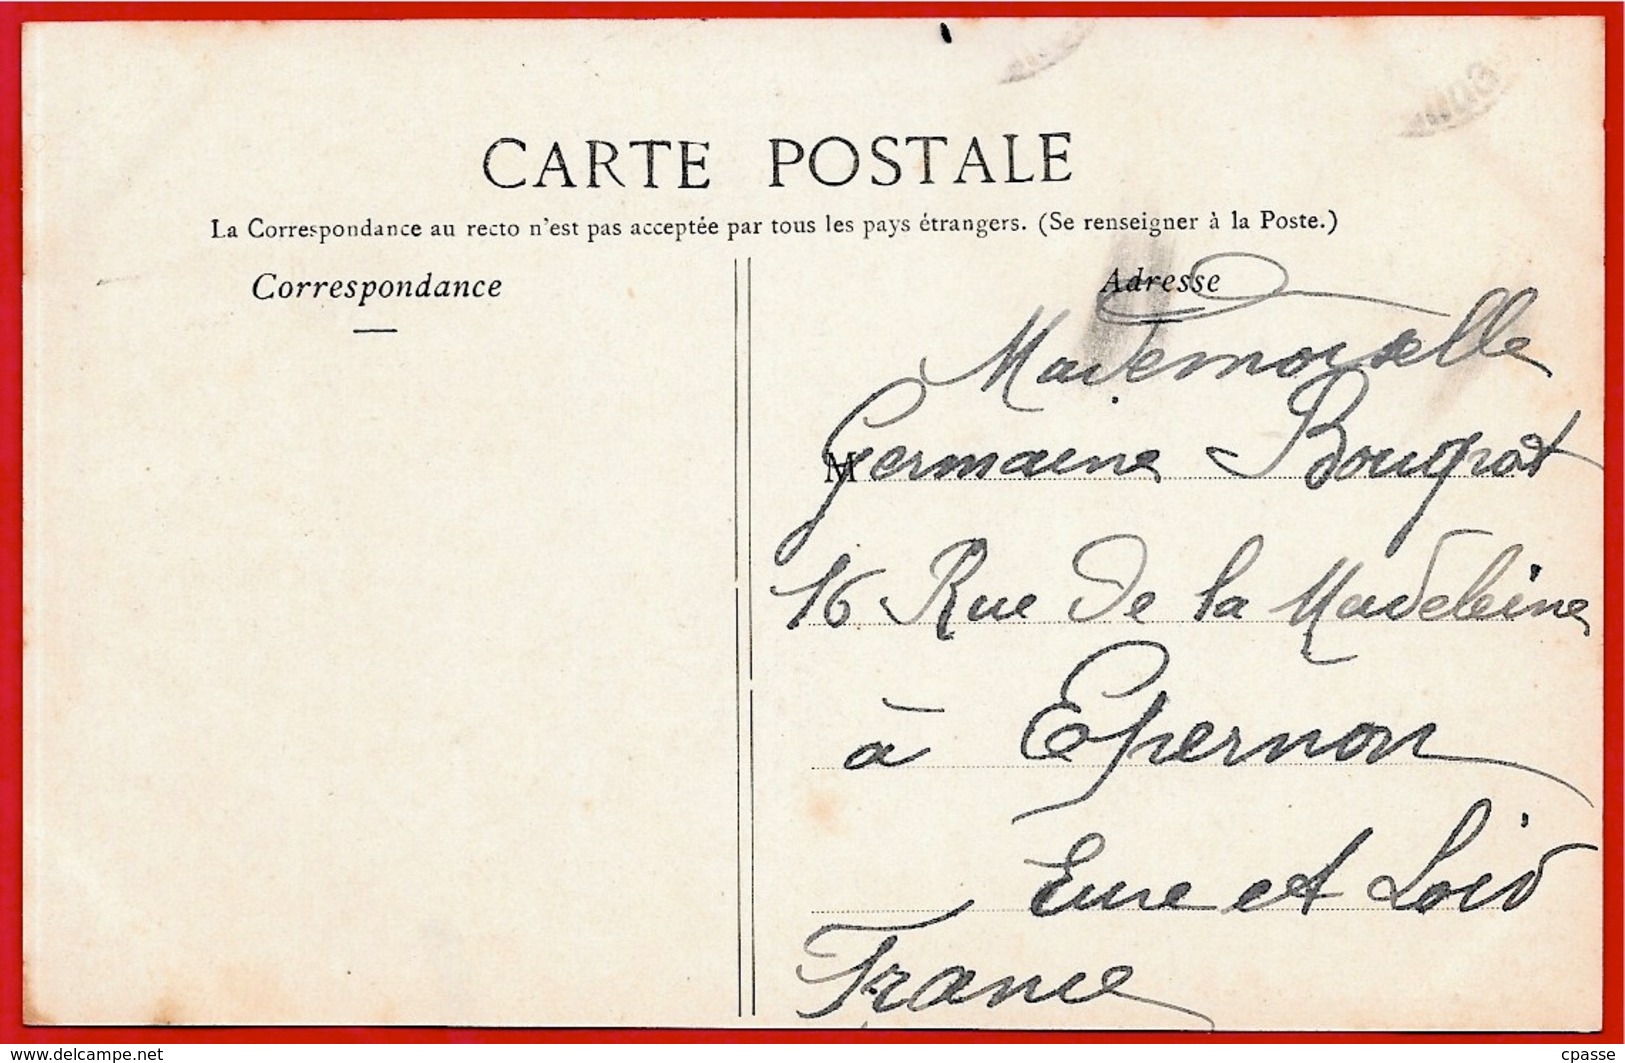 CARTE POSTALE
La Correspondance au recto n'est pas acceptée par tous les pays étrangers. (Se renseigner à la Poste.)
Correspondance
Adresse
Mademoiselle
M Germaine Bougrat
16 Rue de la Madeleine
à Epernon
Eure et Loir
France
www.delcampe.net
cpasse